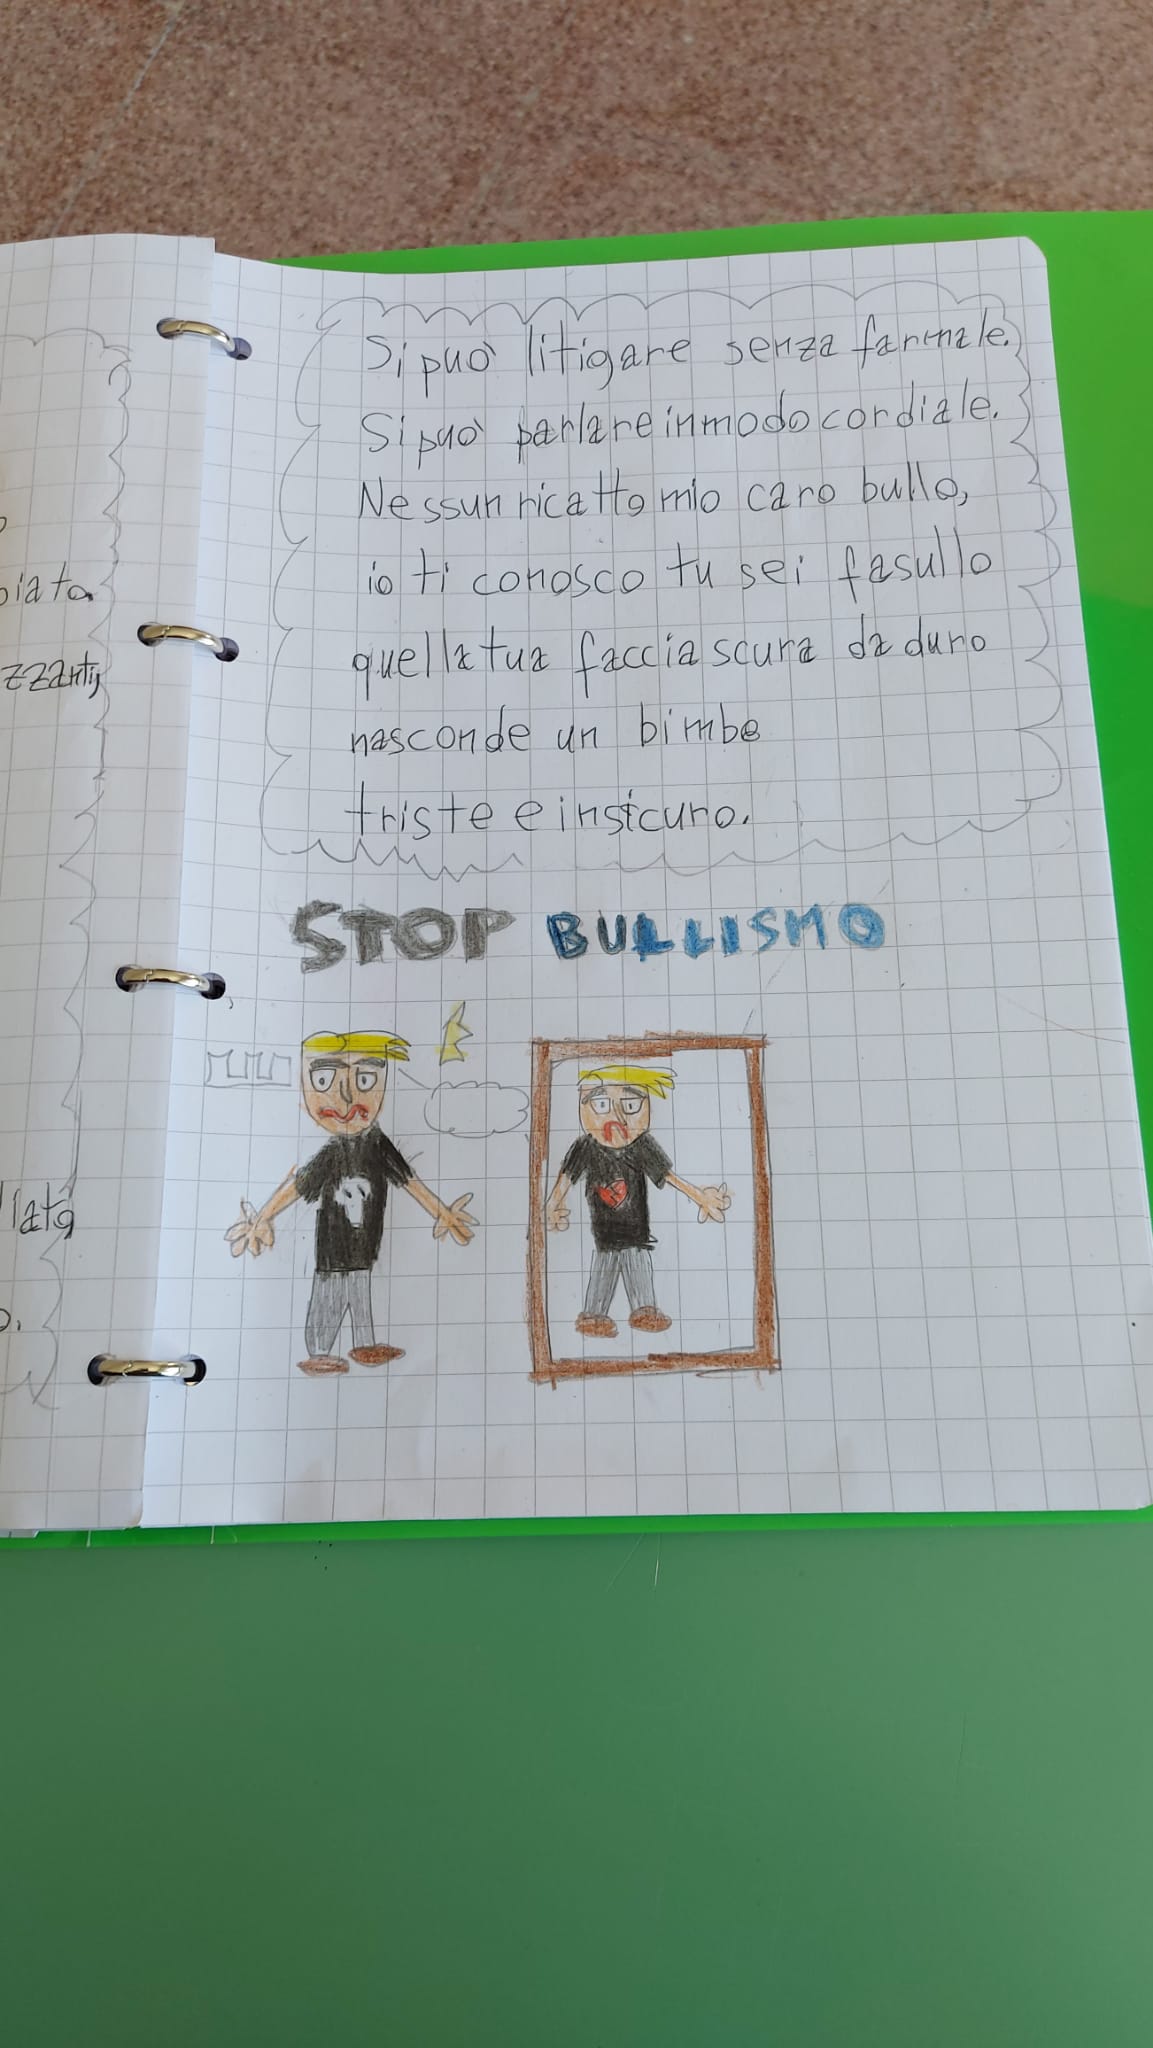 Si può litigare senza farmale.
Si può parlare in modo cordiale.
Nessun ricatto mio caro bullo,
io ti conosco tu sei fasullo
quella tua faccia scura da duro
nasconde un bimbo
triste e insicuro.
STOP BULLISMO